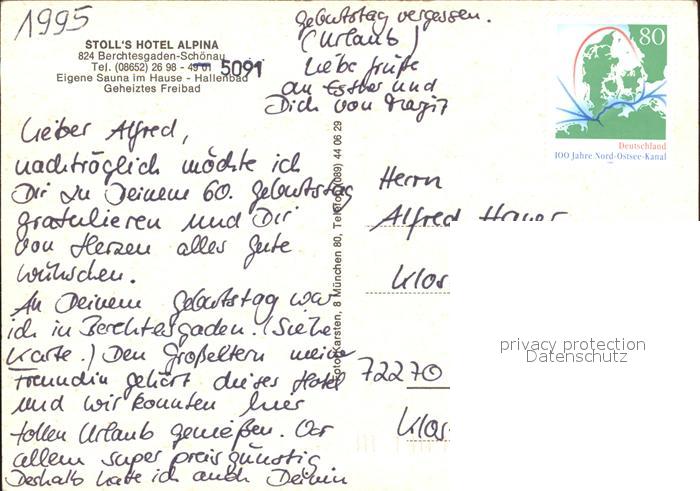 1995
STOLL'S HOTEL ALPINA
824 Berchtesgaden-Schönau
Tel. (08652) 26 98 - 5091
Eigene Sauna im Hause - Hallenbad
Geheiztes Freibad
Lieber Alfred,
nachträglich möchte ich
Dir zu Deinem 60. Geburtstag
gratulieren und Dir
von Herzen alles Gute
wünschen.
An Deinem Geburtstag war
ich in Berchtesgaden. (Siehe
Karte.) Den Großeltern meiner
Freundin gehört dieses Hotel
und wir konnten hier
tollen Urlaub genießen. Vor
allem super preisgünstig
Deshalb hatte ich auch Deinen
Geburtstag vergessen.
(Urlaub)
Liebe Grüße
an Esther und
Dich von
Foto Karsten, 8 München 80, Telefon (089) 44 06 29
80
Deutschland
100 Jahre Nord-Ostsee-Kanal
Herrn
Alfred
Klos
72270
Klos
privacy protection
Datenschutz